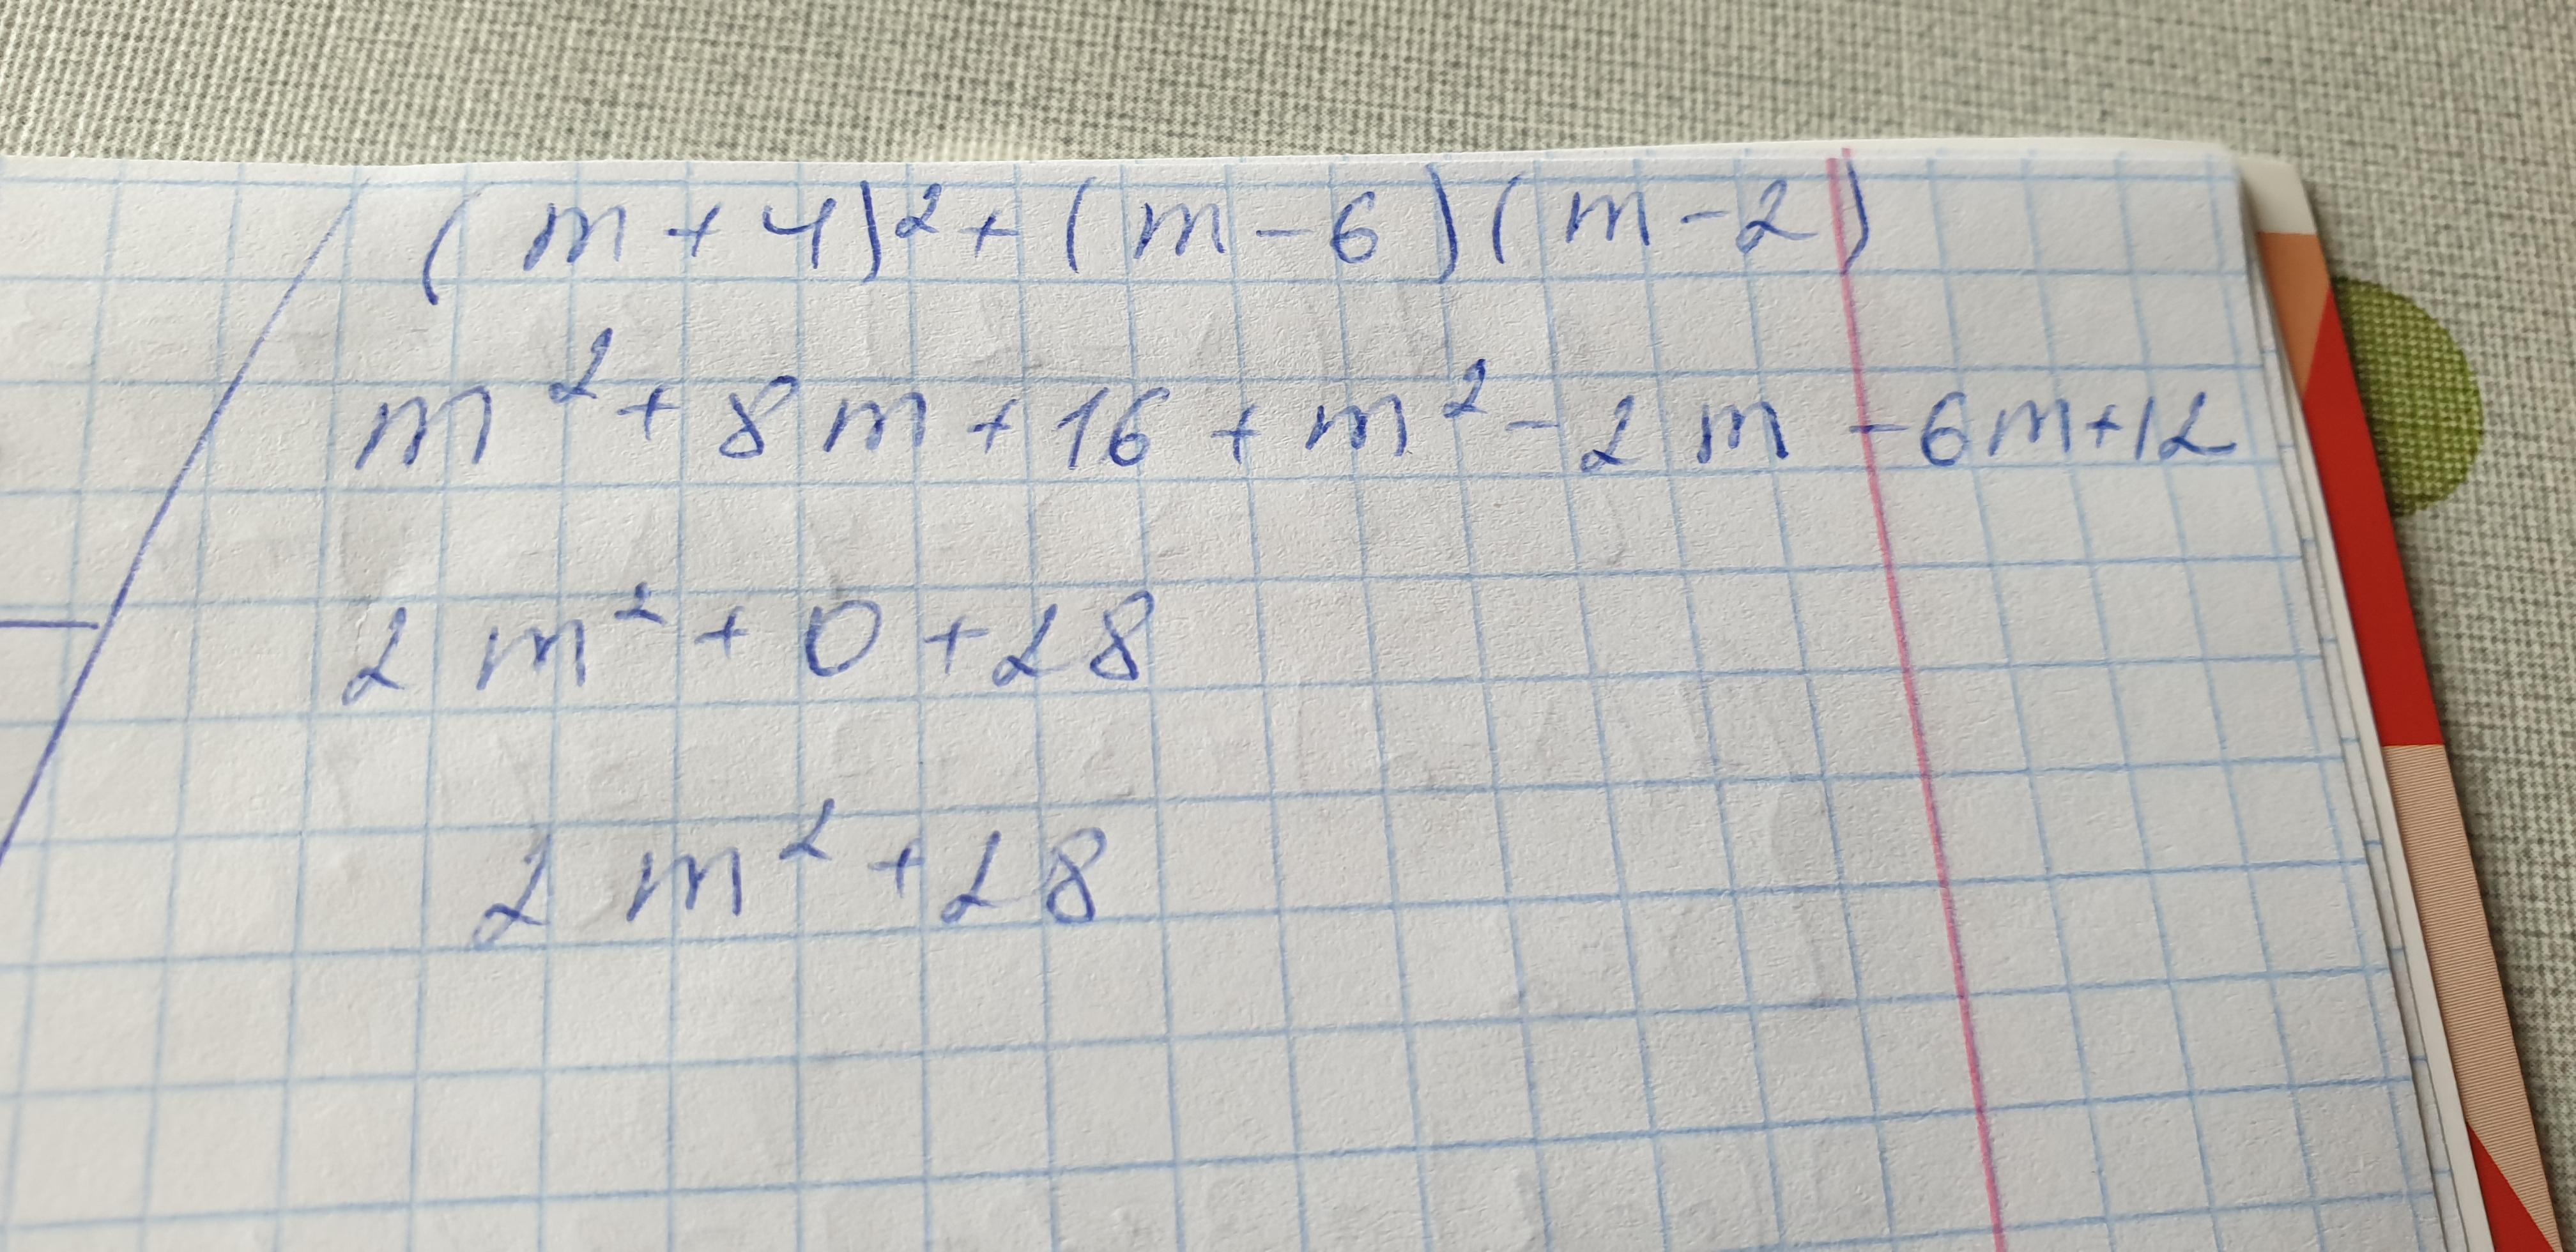 (m+4)²+(m-6)(m-2)
m²+8m+16+m²-2m-6m+12
2m²+0+28
2m²+28